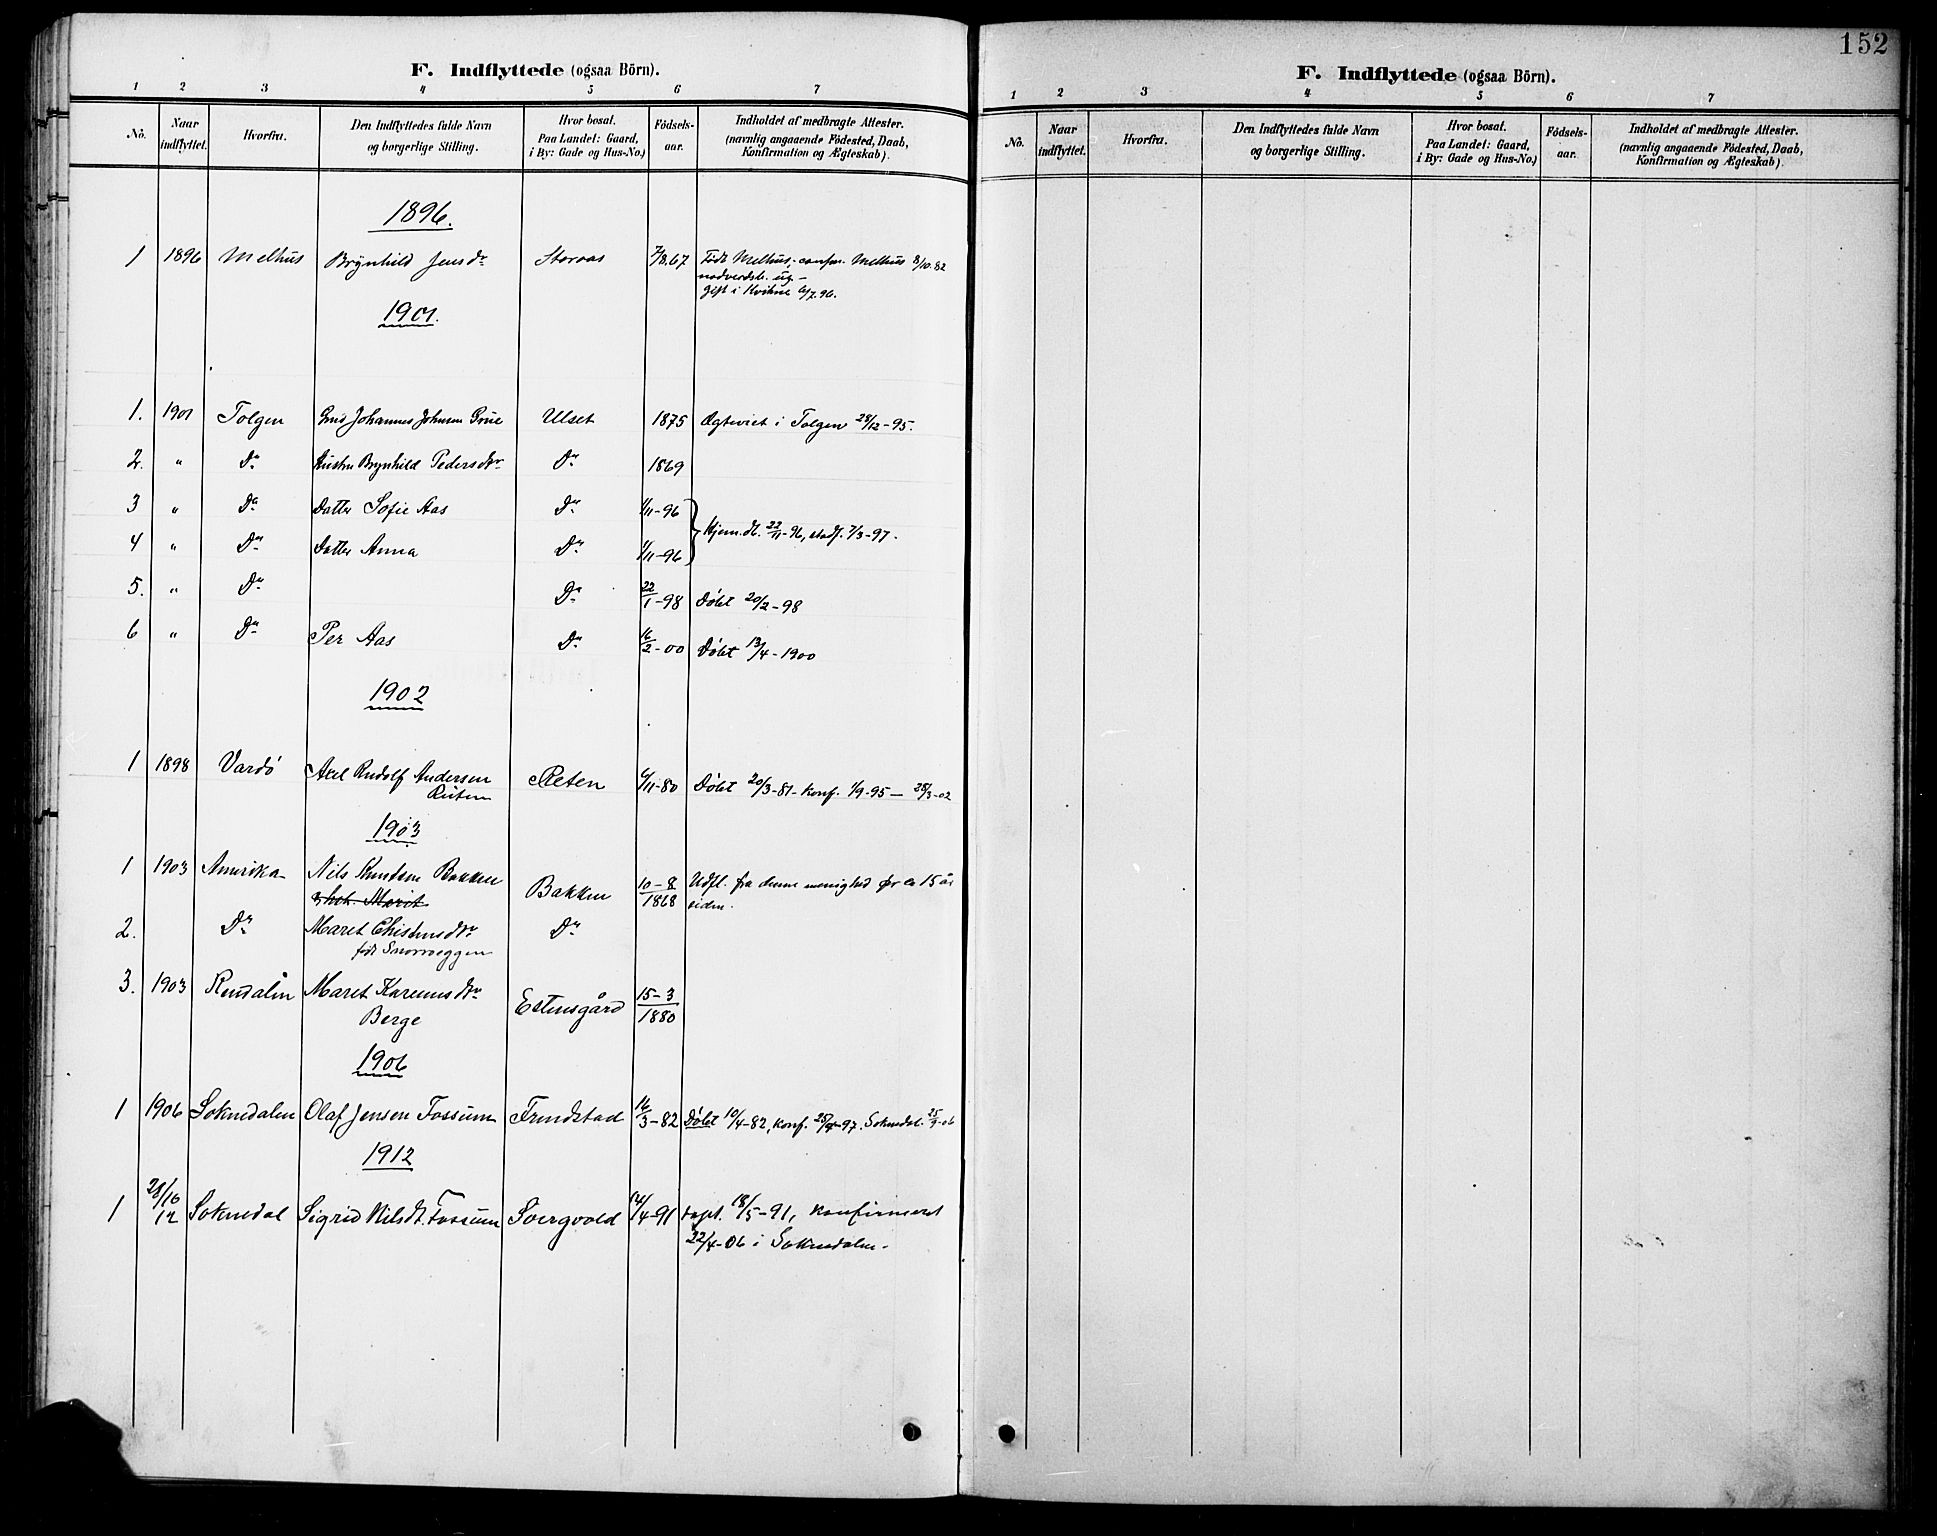 152
F. Indflyttede (ogsaa Börn).
1 2 3 4 5 6 7
No. Naar indflyttet. Hvorfra. Den Indflyttedes fulde Navn og borgerlige Stilling. Hvor bosat. Paa Landet: Gaard, i By: Gade og Hus-No.) Födsels-aar. Indholdet af medbragte Attester. (navnlig angaaende Födested, Daab, Konfirmation og Ægteskab).
1896.
1 1896 Melhus Brynhild Jensdr Storaas 7/8.67 Født Melhus, confirm. Melhus 8/10.82
gift i Kvikne 6/7.96.
1901.
1. 1901 Tolgen Johannes Johnsen Grue Ulset 1875 Ægteviet i Tolgen 28/12-95.
2. " Do Hustru Brynhild Pedersdtr Do 1869
3 " Do Datter Sofie Aas Do 1/11-96
Hjem.db. 22/11-96, stadf. 7/3-97.
4 " Do Datter Anna Do 1/11-96
5. " Do Do 22/1-98 Döbt 20/2-98
6 " Do Per Aas Do 16/2-00 Döbt 13/4-1900
1902
1 1898 Vardö Axel Rudolf Andersen Reten 6/11-80 Döbt 20/3-81- konf. 1/9-95 - 28/3-02
1903
1 1903 Amerika Nils Knudsen Bakken Bakken 10-8/1868 Udfl. fra denne menighed for ca 15 år
siden.
2. Do Maret Do
født
3. 1903 Rendalen Maret Estensgård 15-3/1880
Berge
1906
1 1906 Soknedalen Olaf Jensen Fossum Frendstad 16/3-82 Döbt 10/4-82, konf. 25/4-97. Soknedal. 25/9-06
1912
1 28/10 12 Soknedal Sigrid Nilsdt. Fossum 14/4-91 døpt. 18/5-91, konfirmeret
22/4-06 i Soknedalen-
F. Indflyttede (ogsaa Börn).
1 2 3 4 5 6 7
No. Naar indflyttet. Hvorfra. Den Indflyttedes fulde Navn og borgerlige Stilling. Hvor bosat. Paa Landet: Gaard, i By: Gade og Hus-No.) Födsels-aar. Indholdet af medbragte Attester. (navnlig angaaende Födested, Daab, Konfirmation og Ægteskab).